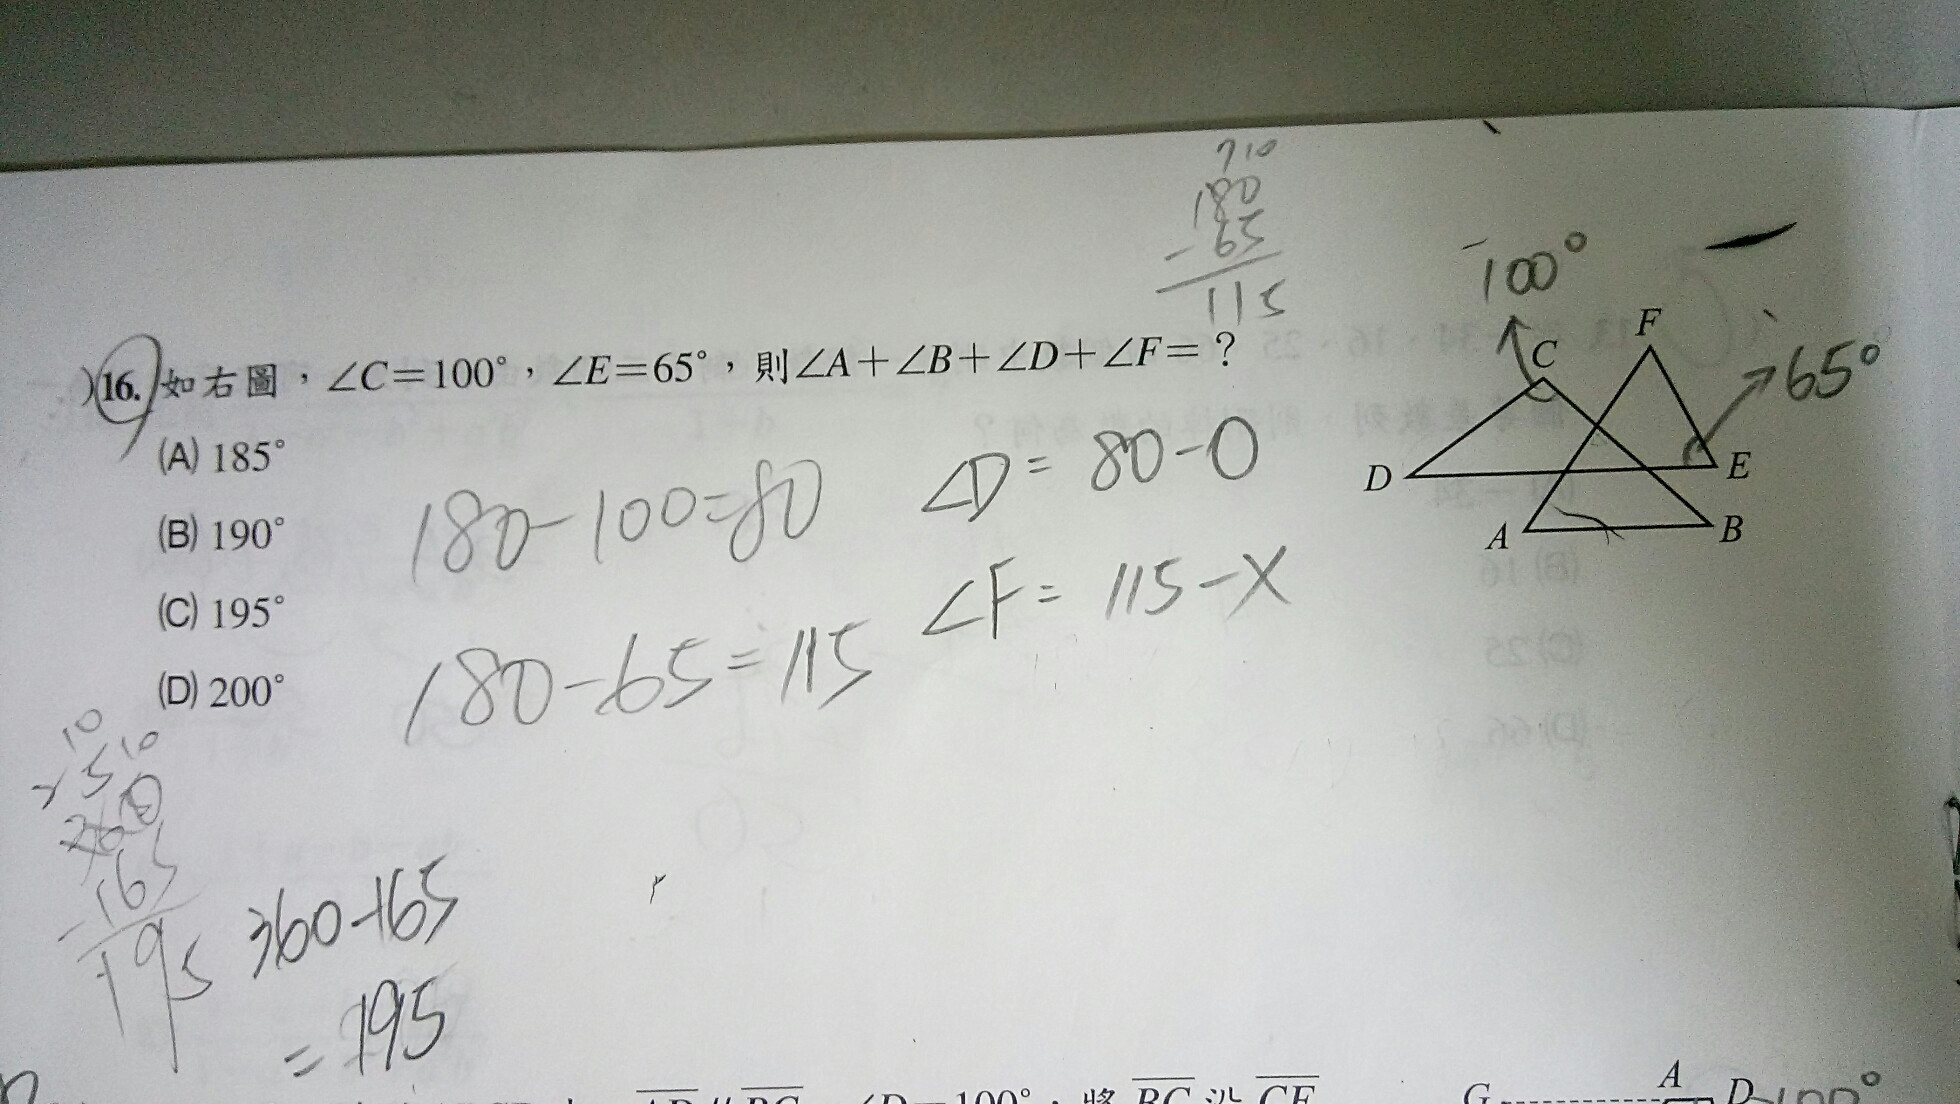 710
180
- 65
115
)16. 如右圖，∠C＝100°，∠E＝65°，則∠A＋∠B＋∠D＋∠F＝？
(A) 185°
(B) 190°
(C) 195°
(D) 200°
180-100=80
∠D= 80-O
180-65=115
∠F= 115-X
100°
65°
F
C
D
E
A
B
10
5 10
360
-165
195
360-165
=195
∠D=100°，將 BC 沿 CE
G
A
D
100°